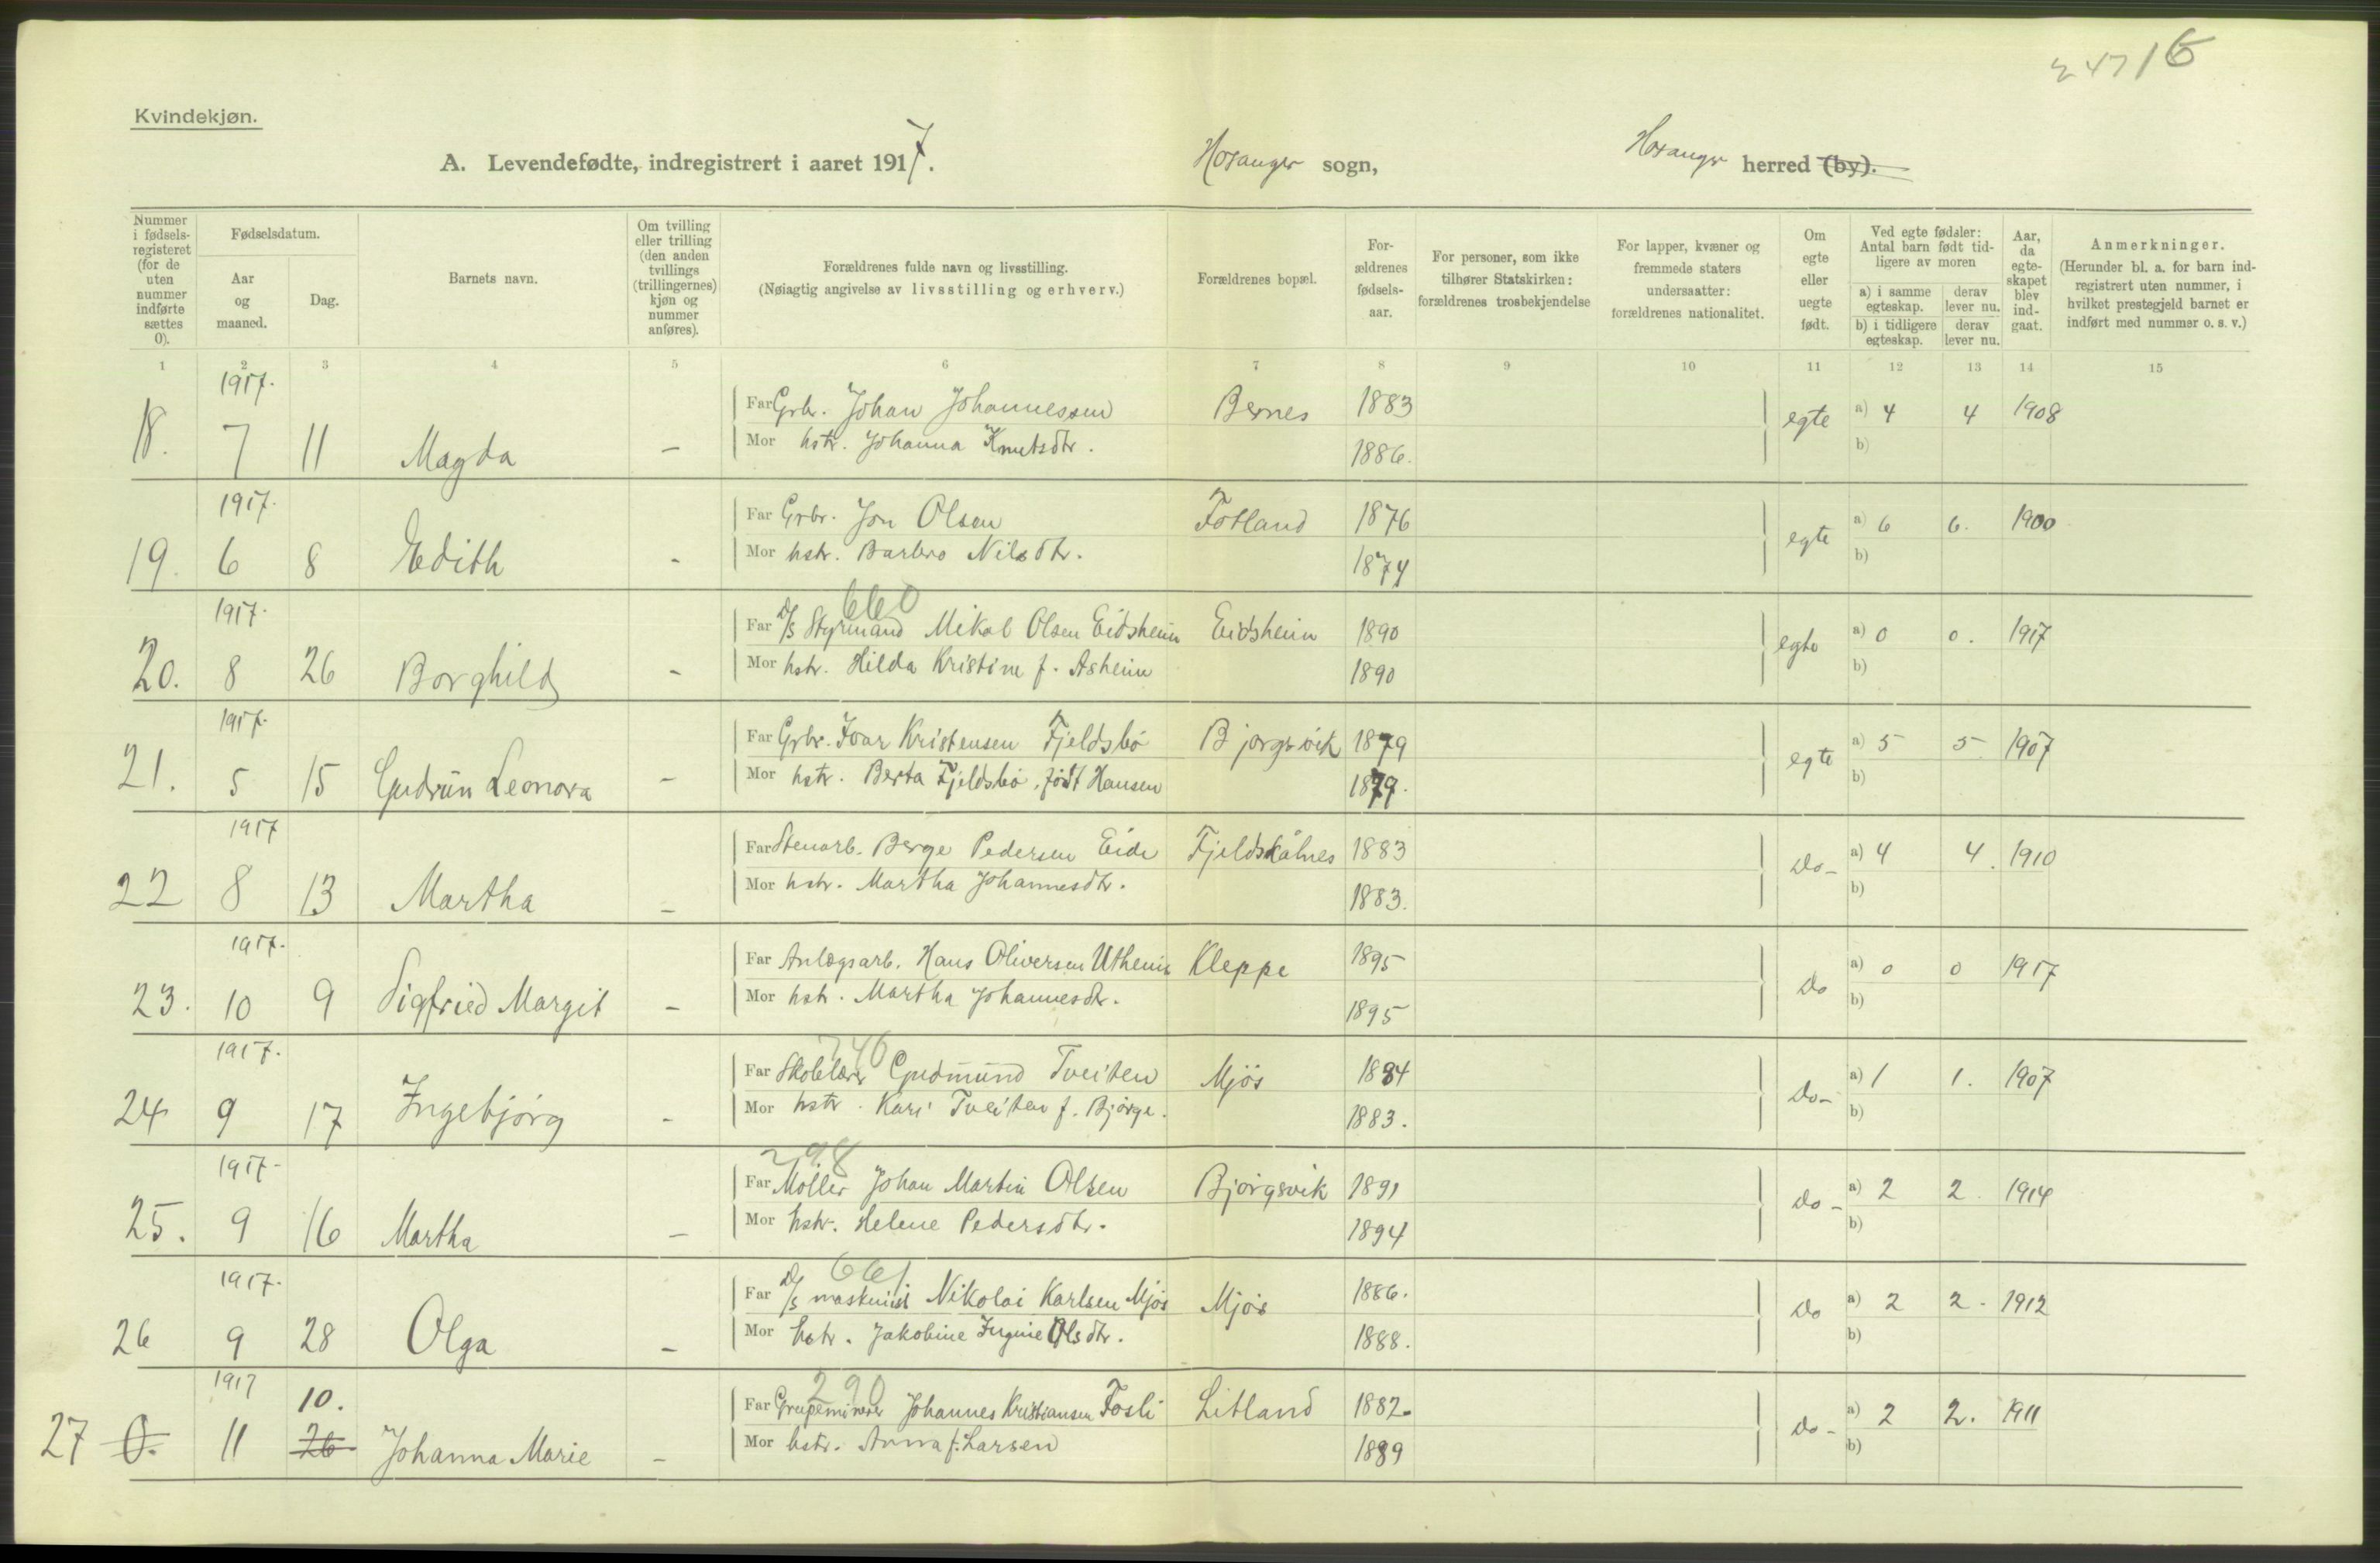 247 16
Kvindekjøn.
A. Levendefødte, indregistrert i aaret 1917. Hosanger sogn, Hosanger herred (by).
Nummer i fødsels-registeret (for de uten nummer indførte sættes 0). Fødselsdatum. Aar og maaned. Dag. Barnets navn. Om tvilling eller trilling (den anden tvillings (trillingernes) kjøn og nummer anføres). Forældrenes fulde navn og livsstilling. (Nøiagtig angivelse av livsstilling og erhverv.) Forældrenes bopæl. For-ældrenes fødsels-aar. For personer, som ikke tilhører Statskirken: forældrenes trosbekjendelse For lapper, kvæner og fremmede staters undersaatter: forældrenes nationalitet. Om egte eller uegte født. Ved egte fødsler: Antal barn født tid-ligere av moren a) i samme egteskap. derav lever nu. b) i tidligere egteskap. derav lever nu. Aar, da egte-skapet blev ind-gaat. Anmerkninger. (Herunder bl. a. for barn ind-registrert uten nummer, i hvilket prestegjeld barnet er indført med nummer o. s. v.)
1 2 3 4 5 6 7 8 9 10 11 12 13 14 15
1917.
Far Grbr. Johan Johannessen Bernes 1883 egte a) 4 4 1908
18. 7 11 Magda - Mor hstr. Johanna Knutsdtr. 1886. b)
1917.
Far Grbr. Jon Olsen Fotland 1876 egte a) 6 6. 1900
19. 6 8 Edith - Mor hstr. Barbro Nilsdtr. 1874 b)
1917. 660
Far D/S Styrmand Mikal Olsen Eidsheim Eidsheim 1890 egte a) 0 0. 1917
20. 8 26 Borghild - Mor hstr. Hilda Kristine f. Asheim 1890 b)
1917.
Far Grbr. Ivar Kristensen Fjeldsbø Bjørgsvik 1879 egte a) 5 5 1907
21. 5 15 Gudrun Leonora - Mor hstr. Berta Fjeldsbø, født Hansen 1879. b)
1917
Far Stenarb. Berge Pedersen Eide Fjeldskålnes 1883 Do - a) 4 4. 1910
22 8 13 Martha - Mor hstr. Martha Johannesdtr. 1883. b)
1917.
Far Anlægsarb. Hans Oliversen Utheim Kleppe 1895 Do a) 0 0 1917
23. 10 9 Sigfried Margit - Mor hstr. Martha Johannesdtr. 1895 b)
1917. 746
Far Skolelærer Gudmund Tveiten Mjøs 1884 Do - a) 1 1. 1907
24 9 17 Ingebjørg - Mor hstr. Kari Tveiten f. Bjørge. 1883. b)
1917 - 298
Far Møller Johan Martin Olsen Bjørgsvik 1891 Do - a) 2 2. 1914
25. 9 16 Martha - Mor hstr. Helene Pedersdtr. 1894 b)
1917. 661
Far D/S maskinist Nikolai Karlsen Mjøs Mjøs 1886. Do a) 2 2. 1912
26 9 28 Olga - Mor hstr. Jakobine Ingine Olsdtr. 1888. b)
1917 10. 290
Far Grubeminerer Johannes Kristiansen Fosli Litland 1882. Do - a) 2 2. 1911
27 0. 11 26 Johanna Marie - Mor hstr. Anna f. Larsen 1889 b)